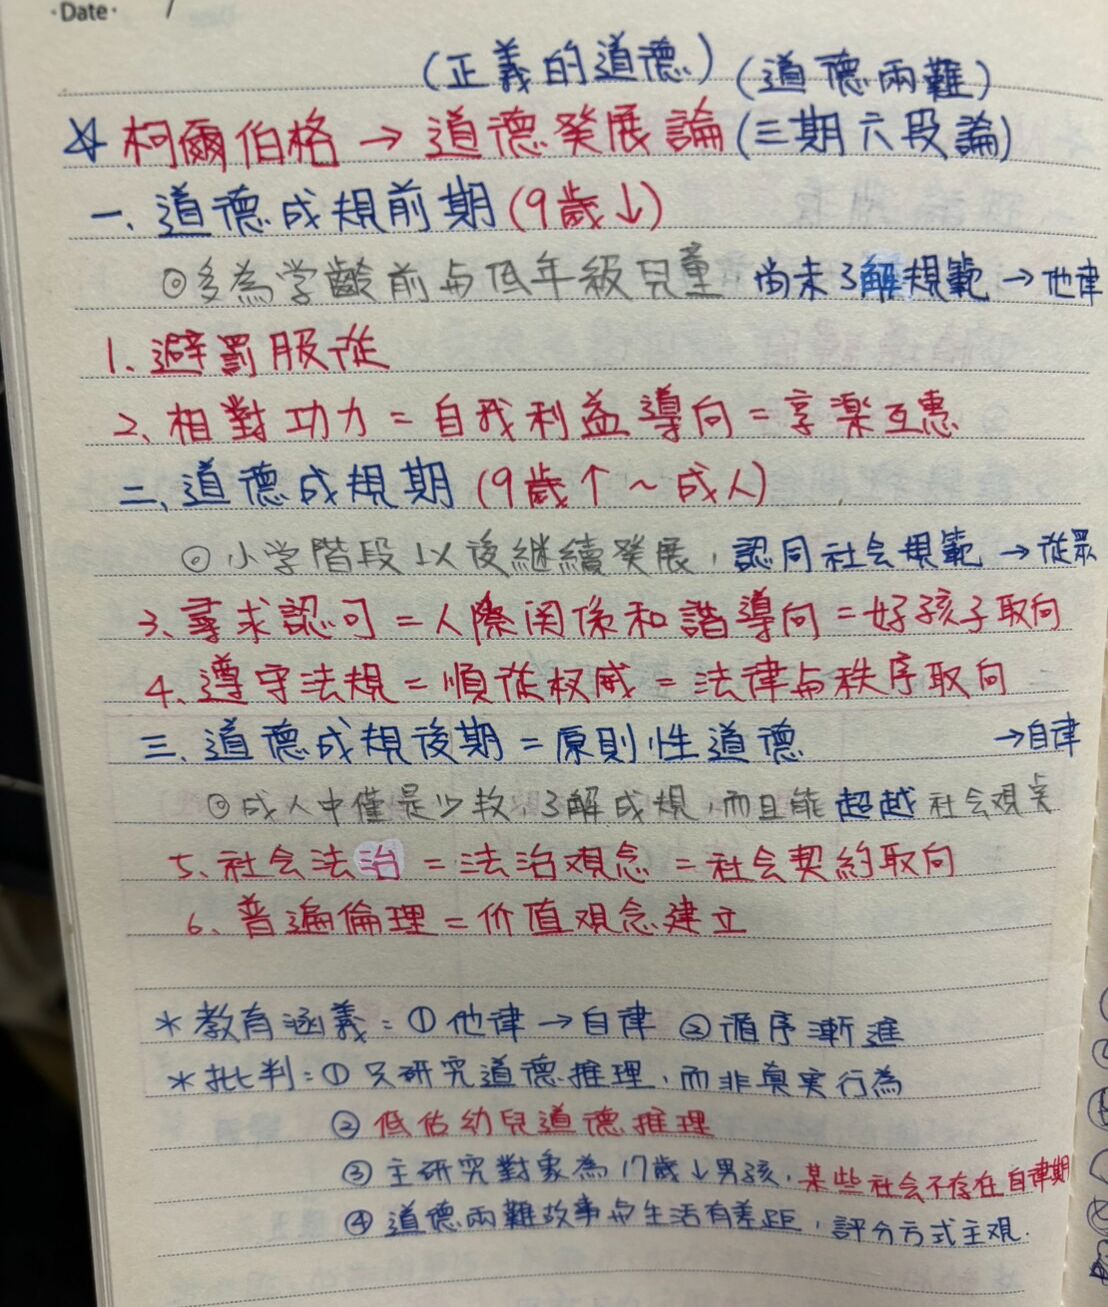 ·Date· /
(正義的道德) (道德兩難)
☆ 柯爾伯格 → 道德發展論 (三期六段論)
一、道德成規前期 (9歲↓)
◎多為学齡前与低年級兒童 尚未了解規範 → 他律
1、避罰服從
2、相對功力 = 自我利益導向 = 享樂互惠
二、道德成規期 (9歲↑~成人)
◎小学階段以後継續發展，認同社会規範 → 從眾
3、尋求認可 = 人際関係和諧導向 = 好孩子取向
4、遵守法規 = 順從权威 = 法律与秩序取向
三、道德成規後期 = 原則性道德 → 自律
◎成人中僅是少数，了解成規，而且能超越社会規
5、社会法治 = 法治观念 = 社会契約取向
6、普遍倫理 = 价值观念建立
* 教育涵義：① 他律 → 自律 ② 循序漸進
* 批判：① 只研究道德推理，而非真実行為
② 低估幼兒道德推理
③ 主研究對象為17歲↓男孩，某些社会不存在自律期
④ 道德兩難故事与生活有差距，評分方式主观.